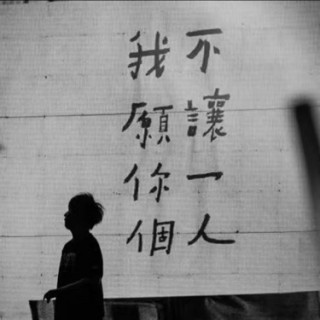 我不
願讓
你一
個人